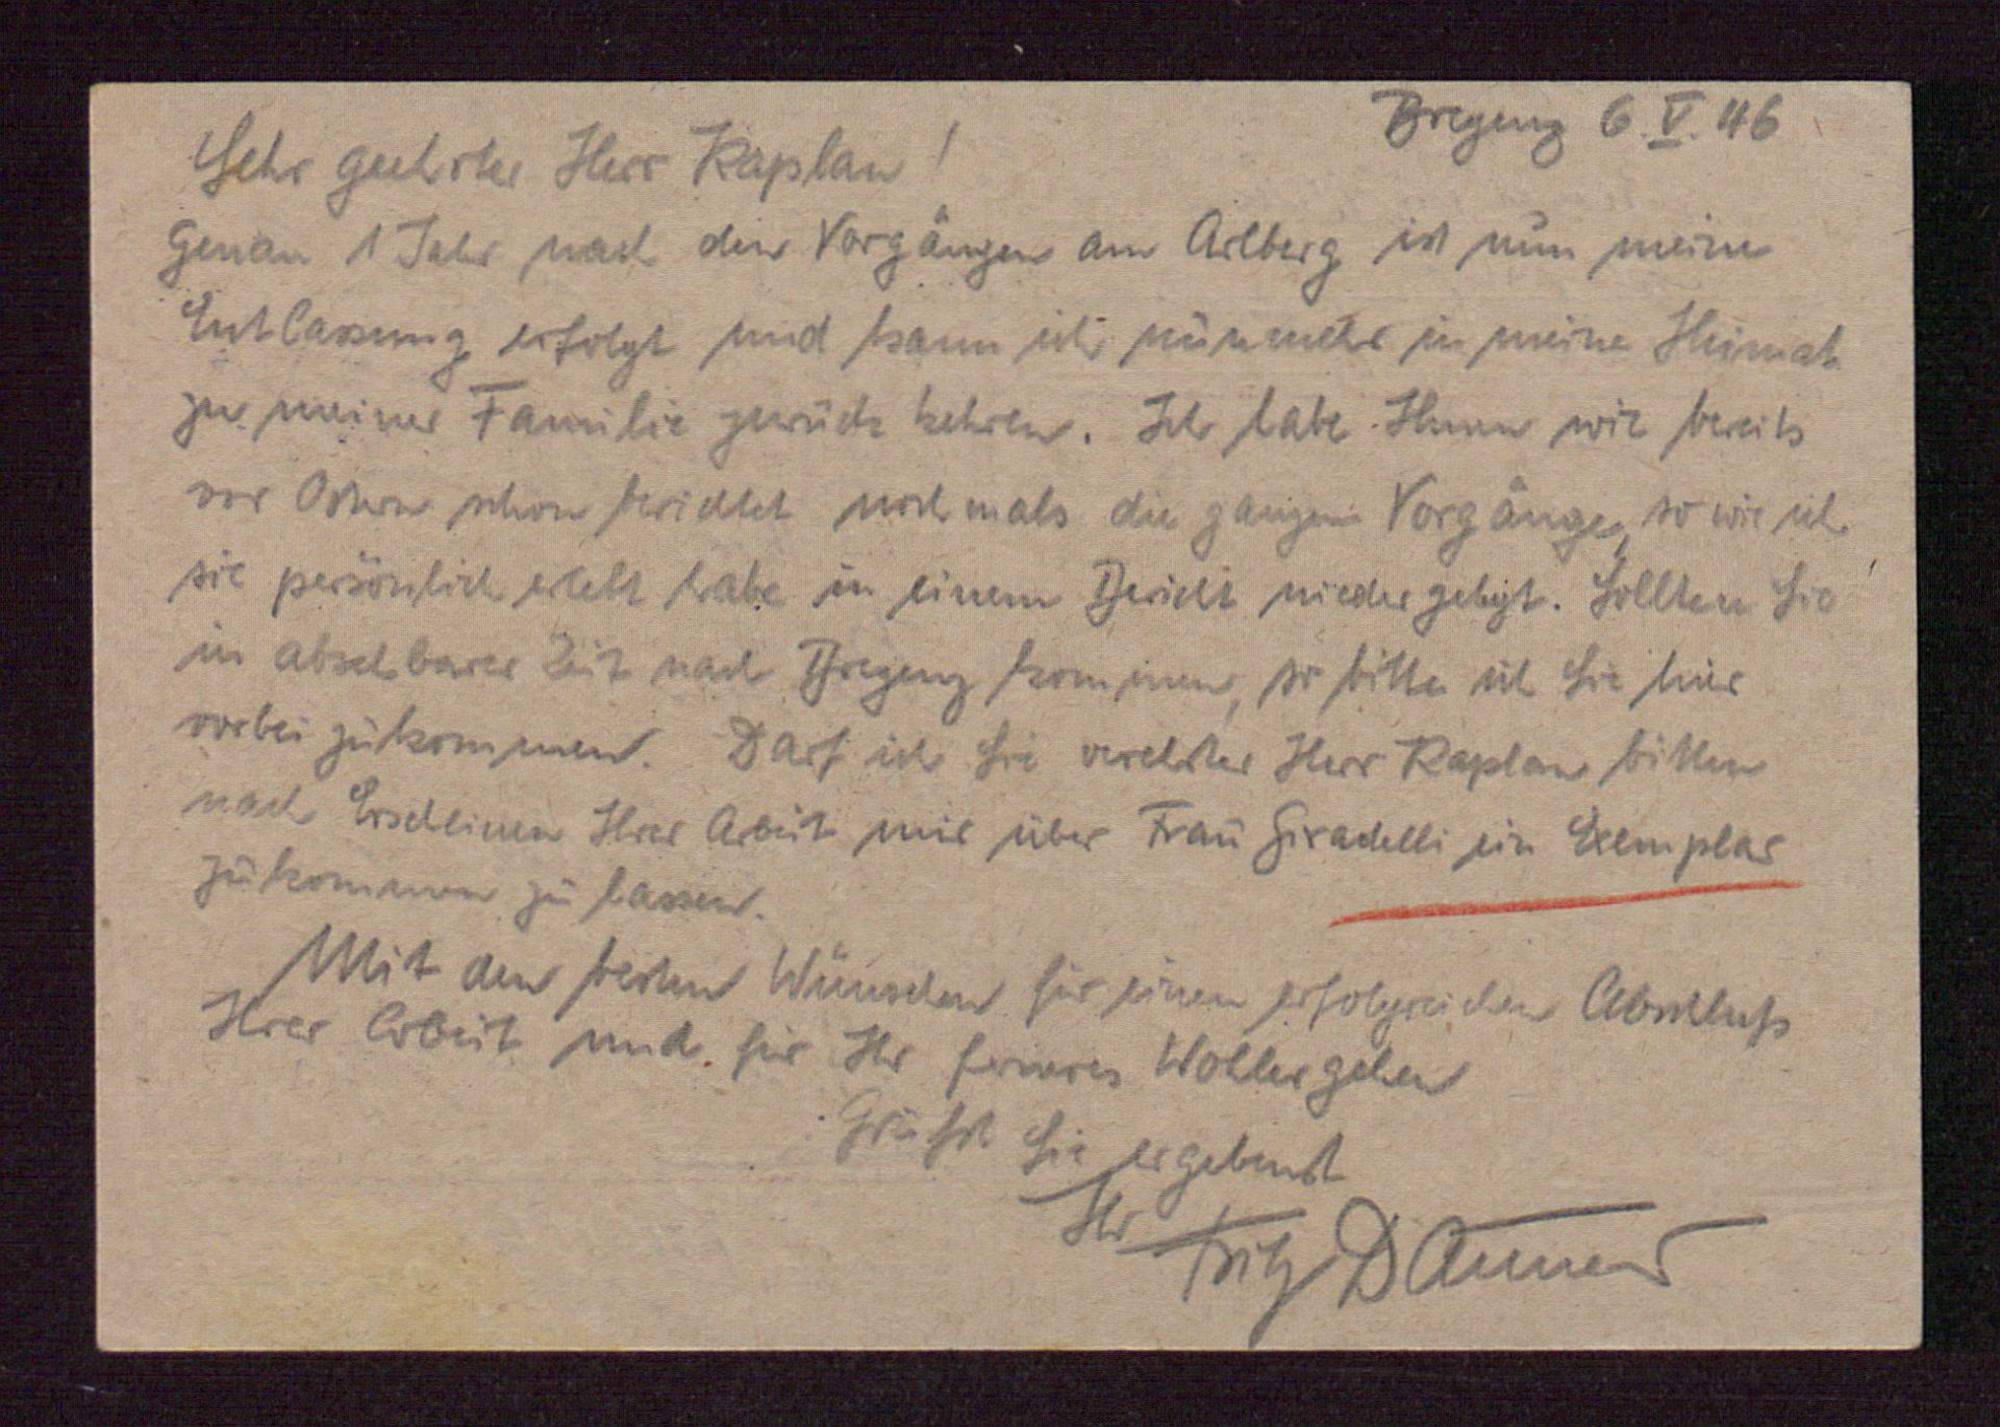 Bregenz 6.V.46
Sehr geehrter Herr Kaplan!
Genau 1 Jahr nach den Vorgängen am Arlberg ist nun meine
Entlassung erfolgt und kann ich nunmehr in meine Heimat
zu meiner Familie zurück kehren. Ich habe Ihnen wie bereits
vor Ostern schon berichtet nochmals die ganzen Vorgänge, so wie ich
sie persönlich erlebt habe in einem Bericht niedergelegt. Sollten Sie
in absehbarer Zeit nach Bregenz kommen, so bitte ich Sie hier
vorbei zukommen. Darf ich Sie verehrter Herr Kaplan bitten
nach Erscheinen Ihrer Arbeit mir über Frau Giradelli ein Exemplar
zukommen zu lassen.
Mit den besten Wünschen für einen erfolgreichen Abschluß
Ihrer Arbeit und für Ihr ferneres Wohlergehen
Grüßt Sie ergebenst
Ihr Fritz